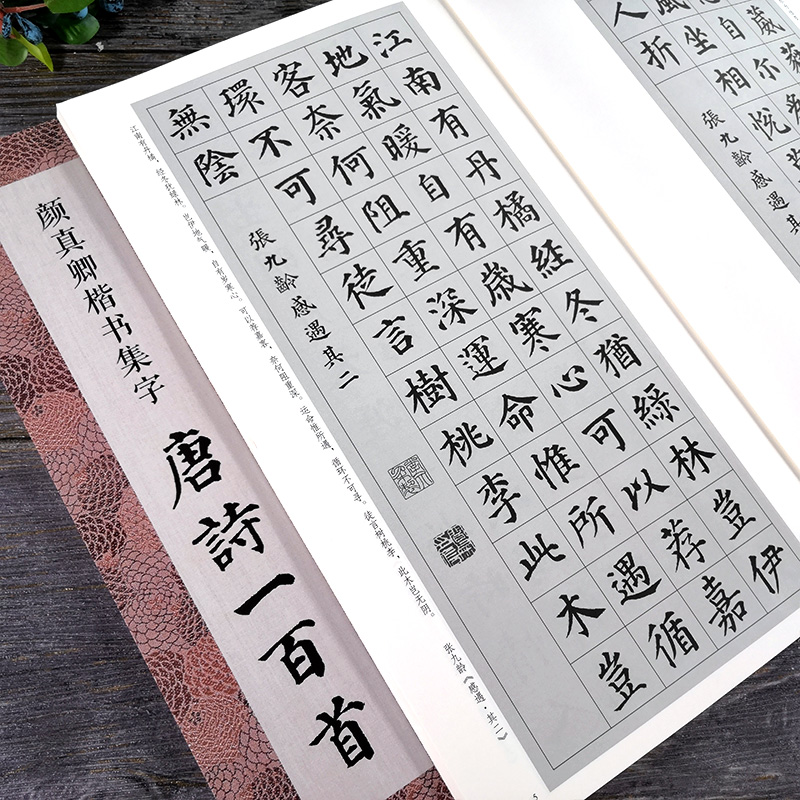 葳蕤
自尔
風坐相悅
人折
張九齡感遇其
江南有丹橘經冬猶綠林豈伊
地氣暖自有歲寒心可以荐嘉
客奈何阻重深運命惟所遇循
環不可尋徒言樹桃李此木豈
無陰
張九齡感遇其二
江南有丹橘，经冬犹绿林。岂伊地气暖，自有岁寒心。可以荐嘉客，奈何阻重深。运命惟所遇，循环不可寻。徒言树桃李，此木岂无阴。
张九龄《感遇·其二》
5
颜真卿楷书集字
唐詩一百首